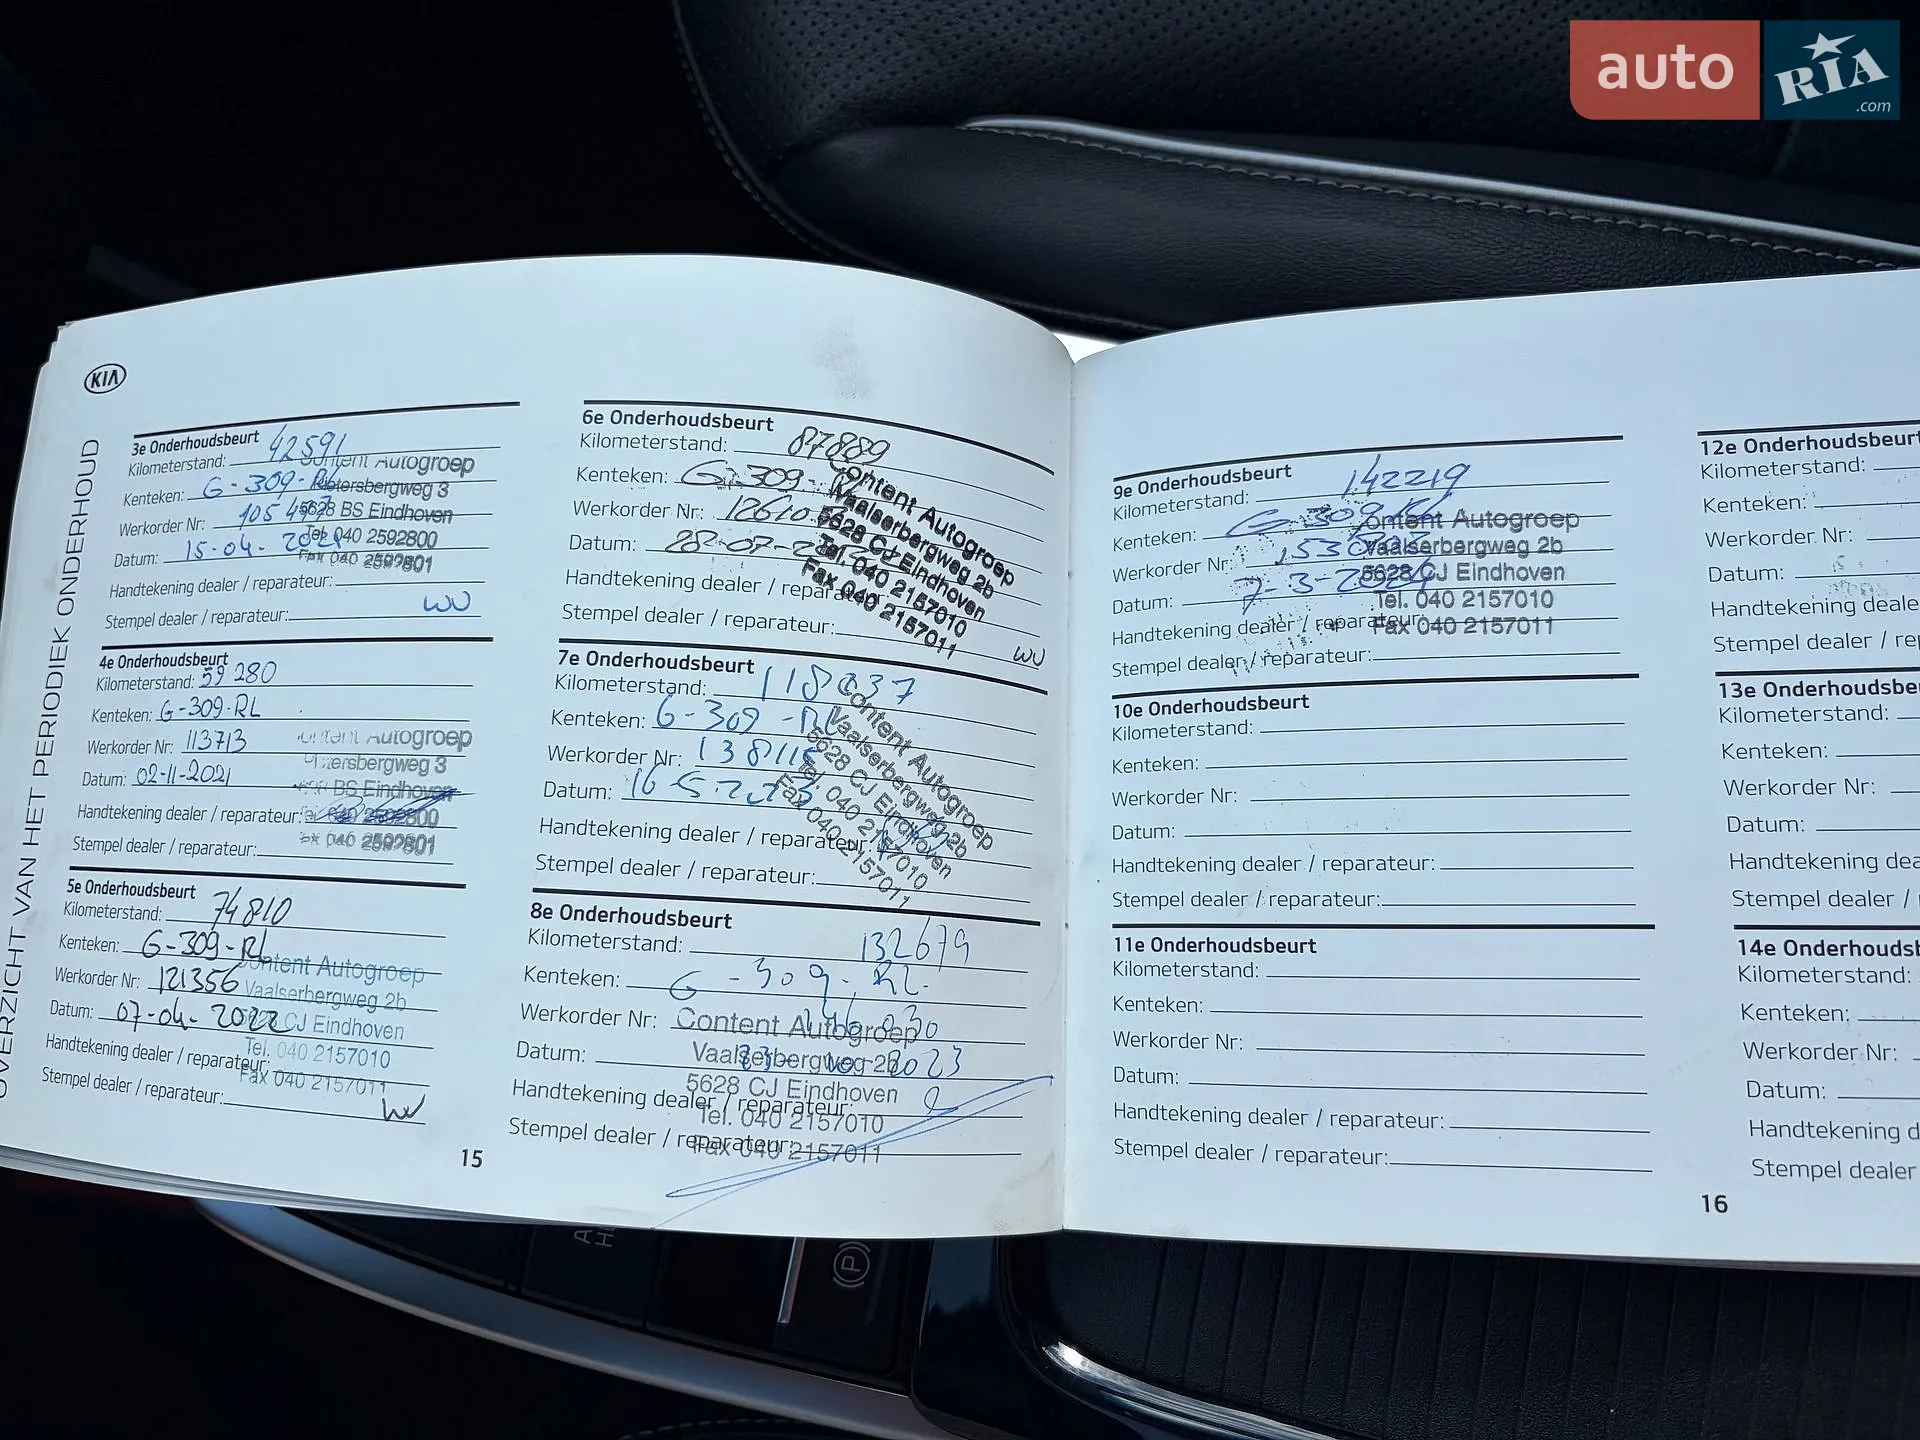 auto RIA.com
KIA
OVERZICHT VAN HET PERIODIEK ONDERHOUD
3e Onderhoudsbeurt
Kilometerstand: 42591
Kenteken: G-309-RL
Werkorder Nr: 105497
Datum: 15-04-2021
Handtekening dealer / reparateur:
Stempel dealer / reparateur:
Content Autogroep
Pietersbergweg 3
5628 BS Eindhoven
Tel. 040 2592800
Fax 040 2592801
4e Onderhoudsbeurt
Kilometerstand: 59 280
Kenteken: G-309-RL
Werkorder Nr: 113713
Datum: 02-11-2021
Handtekening dealer / reparateur:
Stempel dealer / reparateur:
Content Autogroep
BS Eindhoven
Tel. 040 2592800
Fax 040 2592801
5e Onderhoudsbeurt
Kilometerstand: 74810
Kenteken: G-309-RL
Werkorder Nr: 121356
Datum: 07-04-2022
Handtekening dealer / reparateur:
Stempel dealer / reparateur:
Content Autogroep
Vaalserbergweg 2b
5628 CJ Eindhoven
Tel. 040 2157010
Fax 040 2157011
15
6e Onderhoudsbeurt
Kilometerstand: 87889
Kenteken: G-309-
Werkorder Nr:
Datum: 28-07-
Handtekening dealer / reparateur:
Stempel dealer / reparateur:
Content Autogroep
Vaalserbergweg 2b
5628 CJ Eindhoven
Tel. 040 2157010
Fax 040 2157011
7e Onderhoudsbeurt
Kilometerstand: 118037
Kenteken: G-309-RL
Werkorder Nr: 138115
Datum: 16-5-2023
Handtekening dealer / reparateur:
Stempel dealer / reparateur:
Content Autogroep
Vaalserbergweg 2b
5628 CJ Eindhoven
Tel. 040 2157010
Fax 040 2157011
8e Onderhoudsbeurt
Kilometerstand: 132679
Kenteken: G-309-RL-
Werkorder Nr:
Datum: 2023
Handtekening dealer / reparateur:
Stempel dealer / reparateur:
Content Autogroep
Vaalserbergweg 2b
5628 CJ Eindhoven
Tel. 040 2157010
Fax 040 2157011
9e Onderhoudsbeurt
Kilometerstand: 142219
Kenteken: G-309-RL
Werkorder Nr:
Datum: 7-3-2024
Handtekening dealer / reparateur:
Stempel dealer / reparateur:
Content Autogroep
Vaalserbergweg 2b
5628 CJ Eindhoven
Tel. 040 2157010
Fax 040 2157011
10e Onderhoudsbeurt
Kilometerstand:
Kenteken:
Werkorder Nr:
Datum:
Handtekening dealer / reparateur:
Stempel dealer / reparateur:
11e Onderhoudsbeurt
Kilometerstand:
Kenteken:
Werkorder Nr:
Datum:
Handtekening dealer / reparateur:
Stempel dealer / reparateur:
12e Onderhoudsbeurt
Kilometerstand:
Kenteken:
Werkorder Nr:
Datum:
Handtekening deale
Stempel dealer / rep
13e Onderhoudsbe
Kilometerstand:
Kenteken:
Werkorder Nr:
Datum:
Handtekening dea
Stempel dealer /
14e Onderhoudsb
Kilometerstand:
Kenteken:
Werkorder Nr:
Datum:
Handtekening d
Stempel dealer
16
(P)